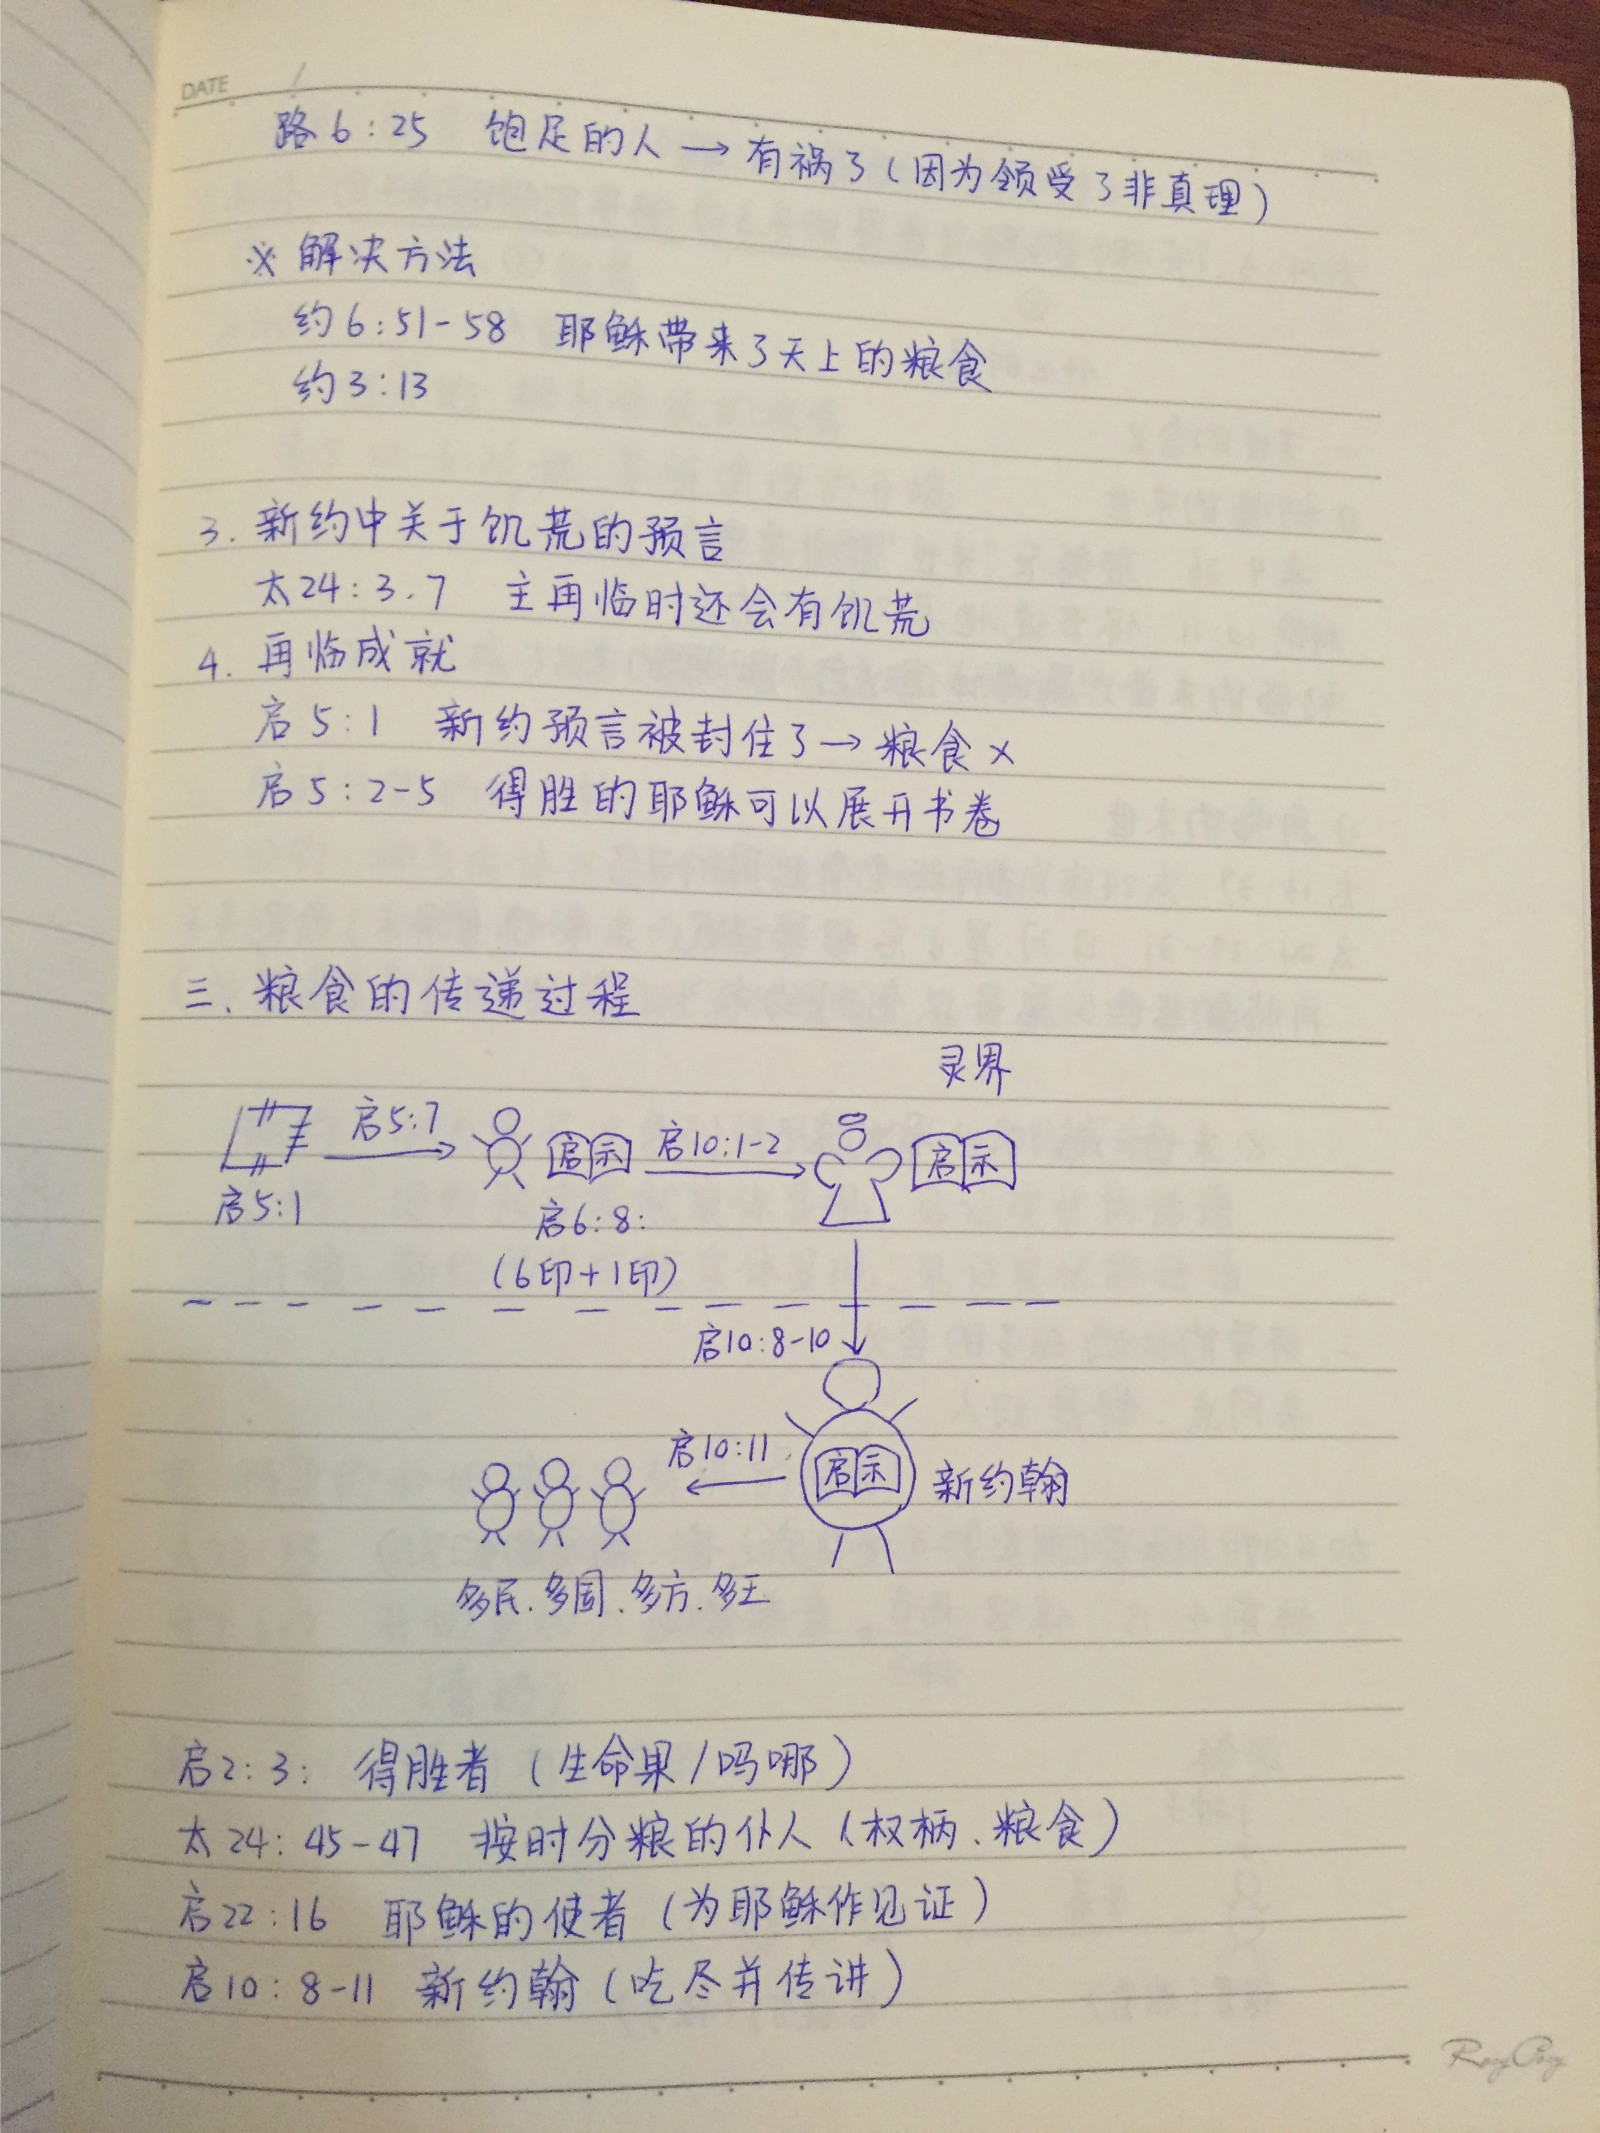 DATE
路6:25 饱足的人→有祸了(因为领受了非真理)
※ 解决方法
约6:51-58 耶稣带来了天上的粮食
约3:13
3. 新约中关于饥荒的预言
太24:3.7 主再临时还会有饥荒
4. 再临成就
启5:1 新约预言被封住了→粮食×
启5:2-5 得胜的耶稣可以展开书卷
三、粮食的传递过程
灵界
启5:7 启示 启10:1-2 启示
启5:1 启6:8:
(6印+1印)
启10:8-10
启10:11 启示 新约翰
多民、多国、多方、多王
启2:3: 得胜者(生命果/吗哪)
太24:45-47 按时分粮的仆人(权柄、粮食)
启22:16 耶稣的使者(为耶稣作见证)
启10:8-11 新约翰(吃尽并传讲)